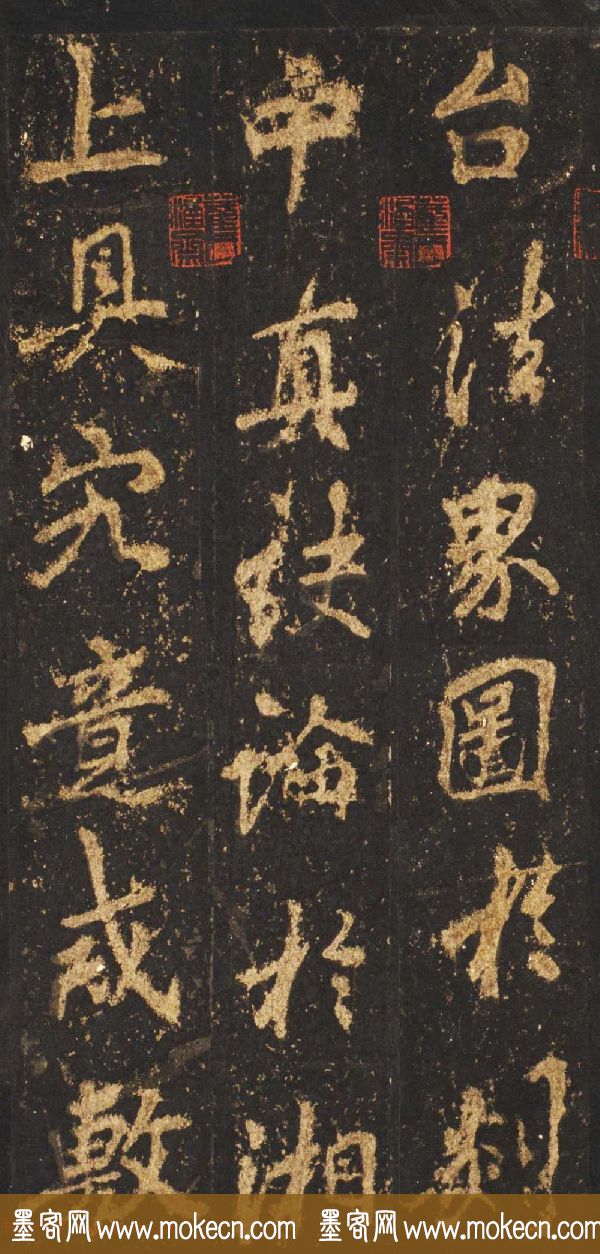 台法界圖於剡
中真訣論於湘
上具究竟戒敷
墨客网 www.mokecn.com 墨客网 www.mokecn.com